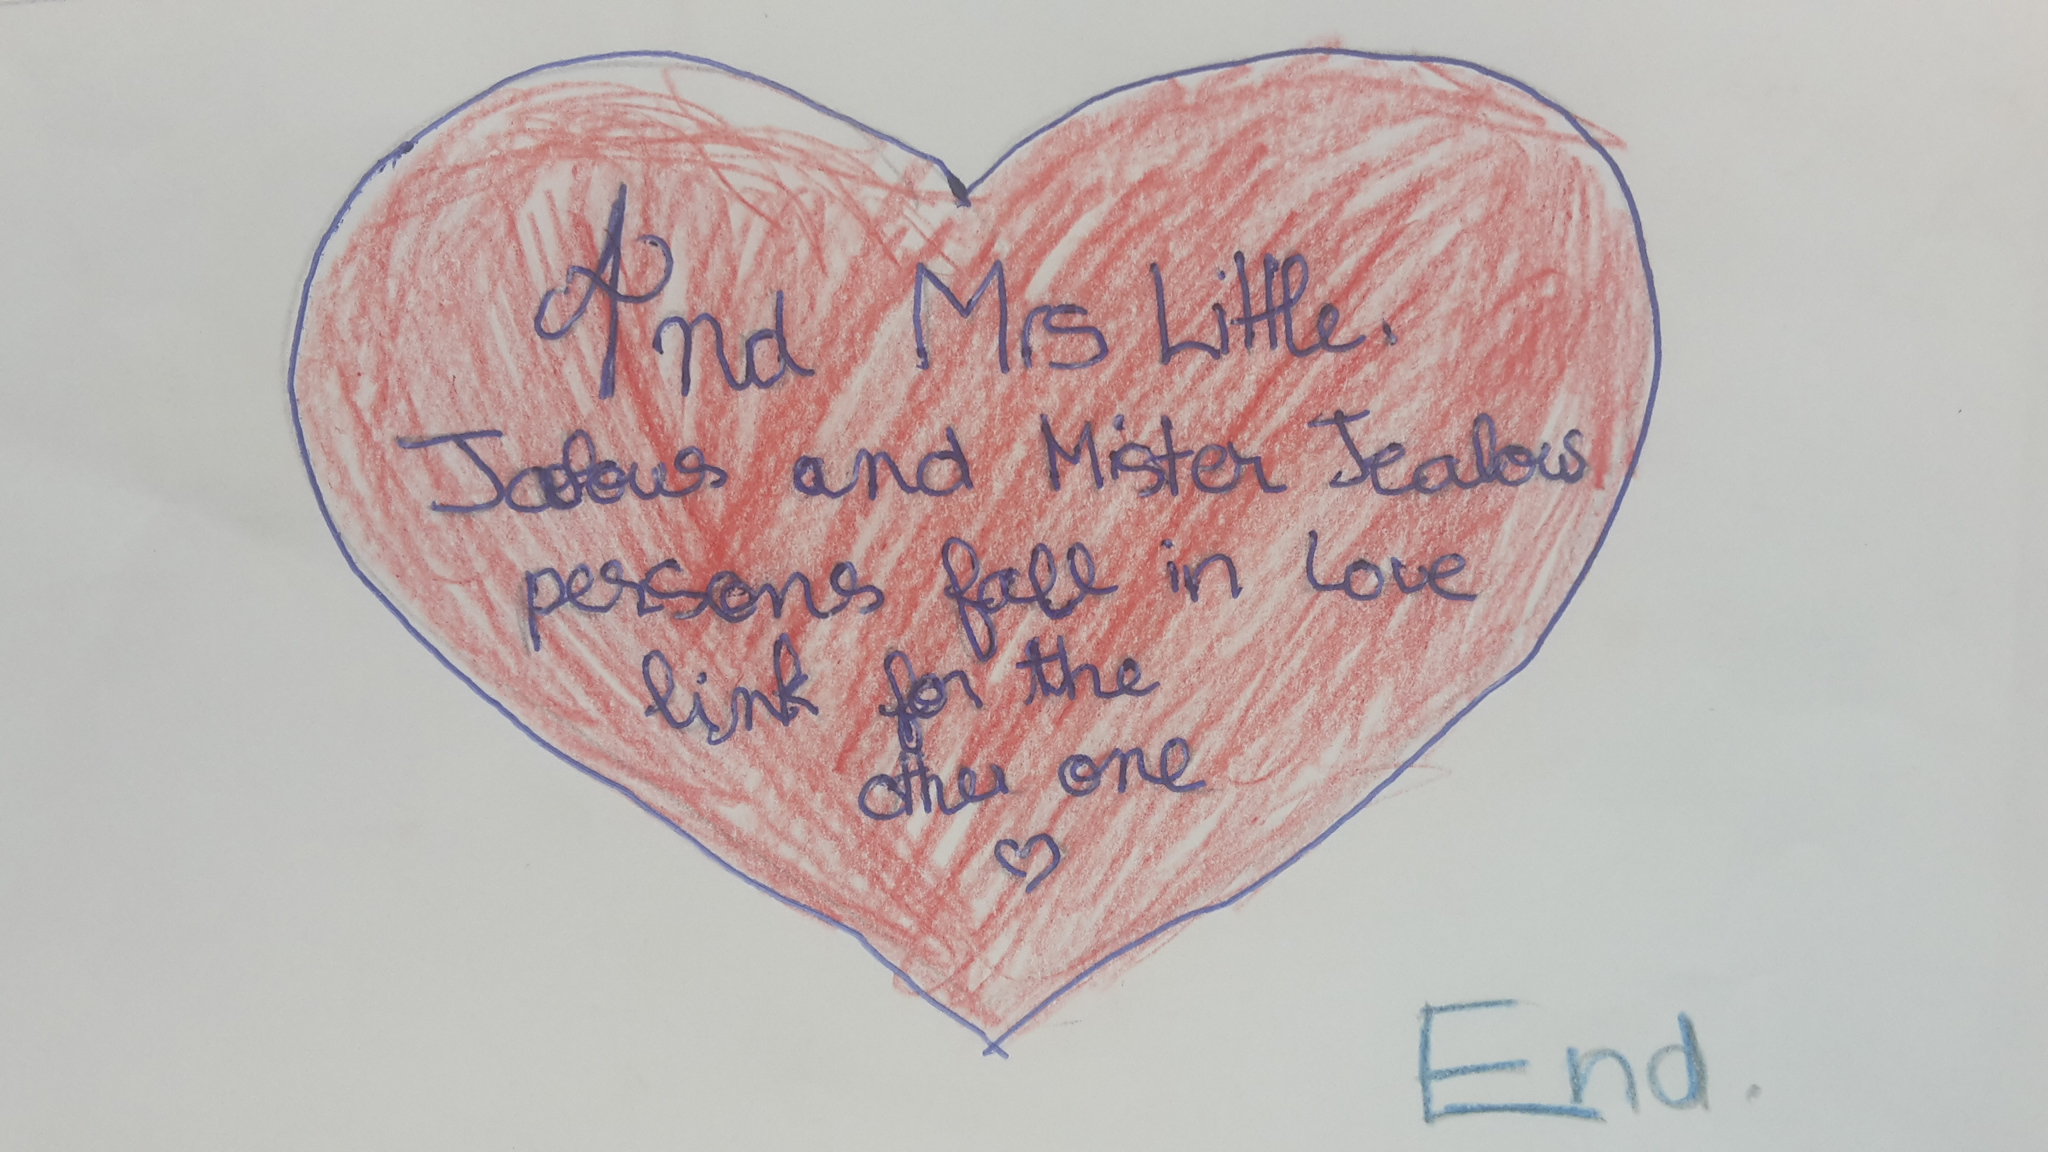 And Mrs Little.
Jealous and Mister Jealous
persons fall in love
link for the
other one
End.